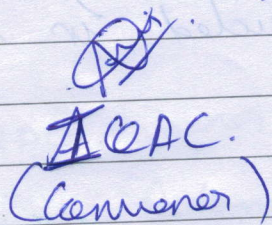 IQAC.
(Convenor)